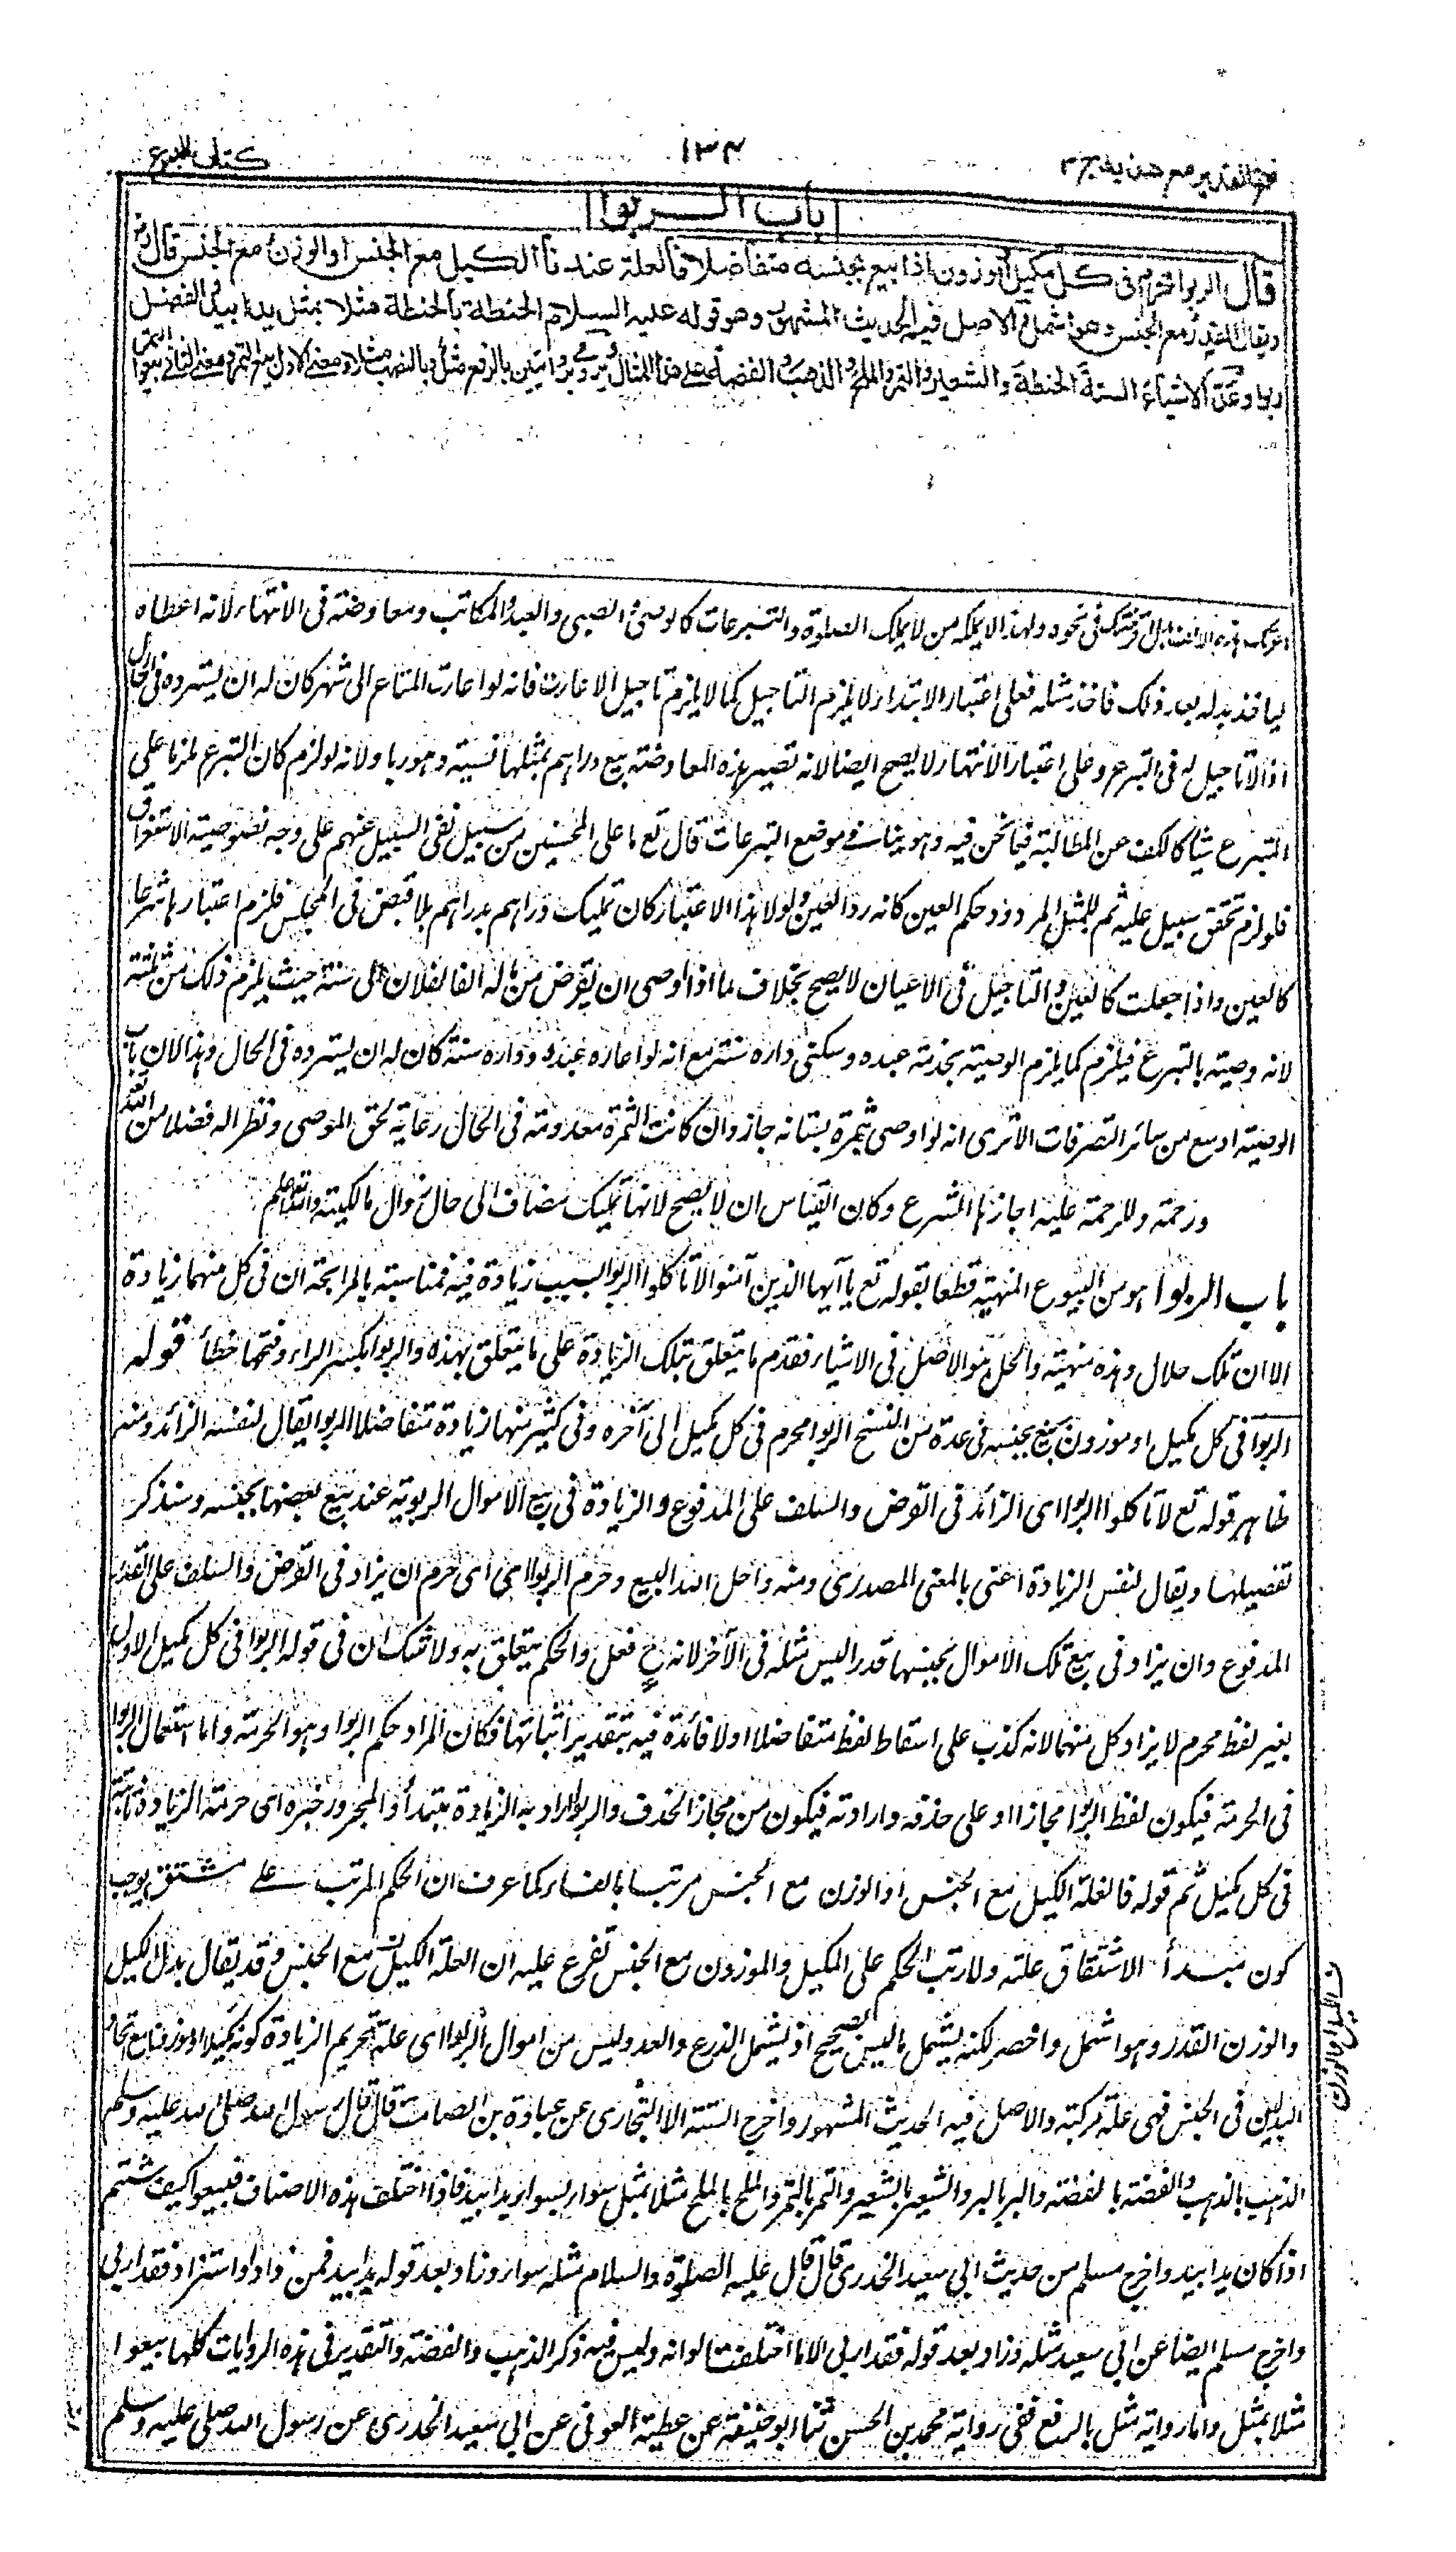 فتح القدیر مع هدایه ج ٣
١٣۴
كتاب البیوع
باب الربوا
قال الربوا محرم فی كل مكیل او موزون اذا بیع بجنسه متفاضلا فالعلة عندنا الكیل مع الجنس او الوزن مع الجنس قال رض
ویقال القدر مع الجنس وهو اشمل والاصل فیه الحدیث المشهور وهو قوله علیه السلام الحنطة بالحنطة مثلا بمثل یدا بید والفضل
ربوا وعد الاشیاء الستة الحنطة والشعیر والتمر والملح والذهب والفضة علی هذا المثال ویروی بروایتین بالرفع مثل وبالنصب مثلا ومعنی الاول بیع التمر ومعنی الثانی بیعوا التمر
فی نحوه ولهذا لا یملكه من لا یملك الصلوة والتبرعات كالوصی والصبی والعبد والمكاتب ومعاوضته فی الانتهاء لانه اعطاه
لیاخذ بدله بعد ذلك فاخذ مثله فعلی اعتبار الابتداء لا یلزم التاجیل كما لا یلزم تاجیل الاعارة فانه لو اعارت المتاع الی شهر كان له ان یسترده فی الحال
اذ لا تاجیل له فی التبرع وعلی اعتبار الانتهاء لا یصح ایضا لانه تصیر بهذه المعاوضة بیع دراهم بمثلها نسیة وهو ربا ولانه لو لزم كان التبرع ملزما علی
المتبرع شیا كالكف عن المطالبة فیما نحن فیه وهو ینافی موضع التبرعات قال تع ما علی المحسنین من سبیل نفی السبیل عنهم علی وجه نصوصیة الاستغراق
فلو لزم تحقق سبیل علیه ثم للمثل المردود حكم العین كانه رد العین ولولا هذا الاعتبار كان تملیك دراهم بدراهم بلا قبض فی المجلس فلزم اعتبارها شرعا
كالعین واذا جعلت كالعین والتاجیل فی الاعیان لا یصح بخلاف ما اذا اوصی ان یقرض من ماله الفا لفلان الی سنة حیث یلزم ذلك من ثلثه
لانه وصیة بالتبرع فیلزم كما یلزم الوصیة بخدمة عبده وسكنی داره سنة مع انه لو اعاره عبده وداره سنة كان له ان یسترده فی الحال وهذا لان باب
الوصیة اوسع من سائر التصرفات الا تری انه لو اوصی بثمرة بستانه جاز وان كانت الثمرة معدومة فی الحال رعایة لحق الموصی ونظرا له فضلا من الله
ورحمة وللرحمة علیه اجازها الشرع وكان القیاس ان لا یصح لانها تملیك مضاف الی حال زوال مالكیته والله تعالی اعلم
باب الربوا هو من البیوع المنهیة قطعا بقوله تع یا ایها الذین آمنوا لا تاكلوا الربوا بسبب زیادة فیه فمناسبته بالمرابحة ان فی كل منهما زیادة
الا ان تلك حلال وهذه منهیة والحل هو الاصل فی الاشیاء فقدم ما یتعلق بتلك الزیادة علی ما یتعلق بهذه والربوا بكسر الراء وفتحها خطأ قوله
الربوا فی كل مكیل او موزون بیع بجنسه فی عدة من النسخ الربوا محرم فی كل مكیل الی آخره وفی كثیر منها زیادة متفاضلا الربوا یقال لنفس الزائد ومنه
ظاهر قوله تع لا تاكلوا الربوا ای الزائد فی القرض والسلف علی المدفوع والزیادة فی بیع الاموال الربویة عند بیع بعضها بجنسه وسنذكر
تفصیلها ویقال لنفس الزیادة اعنی بالمعنی المصدری ومنه واحل الله البیع وحرم الربوا ای حرم ان یزاد فی القرض والسلف علی القدر
المدفوع وان یزاد فی بیع تلك الاموال بجنسها قدرا لیس مثله فی الآخر لانه ح فعل والحكم یتعلق به ولا شك ان فی قوله الربوا فی كل مكیل الاول
بغیر لفظ محرم لا یراد كل منهما لانه كذب علی اسقاط لفظ متفاضلا اولا فائدة فیه بتقدیر اثباتها فكان المراد حكم الربوا وهو الحرمة واما استعمال الربوا
فی الحرمة فیكون لفظ الربوا مجازا او علی حذفه وارادته فیكون من مجاز الحذف والربوا یراد به الزیادة مبتدأ والمجرور خبره ای حرمة الزیادة ثابتة
فی كل مكیل ثم قوله فالعلة الكیل مع الجنس او الوزن مع الجنس مرتبا بالفاء كما عرف ان الحكم المرتب علی مشتق یوجب
كون مبدأ الاشتقاق علته ولا رتب الحكم علی المكیل والموزون مع الجنس تفرع علیه ان العلة الكیل مع الجنس وقد یقال بدل الكیل
والوزن القدر وهو اشمل واخصر لكنه یشمل ما لیس بصحیح اذ یشمل الذرع والعد ولیس من اموال الربوا ای علة تحریم الزیادة كونه مكیلا او موزونا مع اتحاد
البدلین فی الجنس فهی علة مركبة والاصل فیه الحدیث المشهور واخرج الستة الا البخاری عن عبادة بن الصامت قال قال رسول الله صلی الله علیه وسلم
الذهب بالذهب والفضة بالفضة والبر بالبر والشعیر بالشعیر والتمر بالتمر والملح بالملح مثلا بمثل سواء بسواء یدا بید فاذا اختلف هذه الاصناف فبیعوا كیف شئتم
اذا كان یدا بید واخرج مسلم من حدیث ابی سعید الخدری قال قال علیه الصلوة والسلام مثله سواء وزاد بعد قوله یدا بید فمن زاد او استزاد فقد اربی
واخرج مسلم ایضا عن ابی سعید مثله وزاد بعد قوله فقد اربی الا ما اختلفت الوانه ولیس فیه ذكر الذهب والفضة والتقدیر فی هذه الروایات كلها بیعوا
مثلا بمثل واما روایة مثل بالرفع ففی روایة محمد بن الحسن ثنا ابو حنیفة عن عطیة العوفی عن ابی سعید الخدری عن رسول الله صلی علیه وسلم